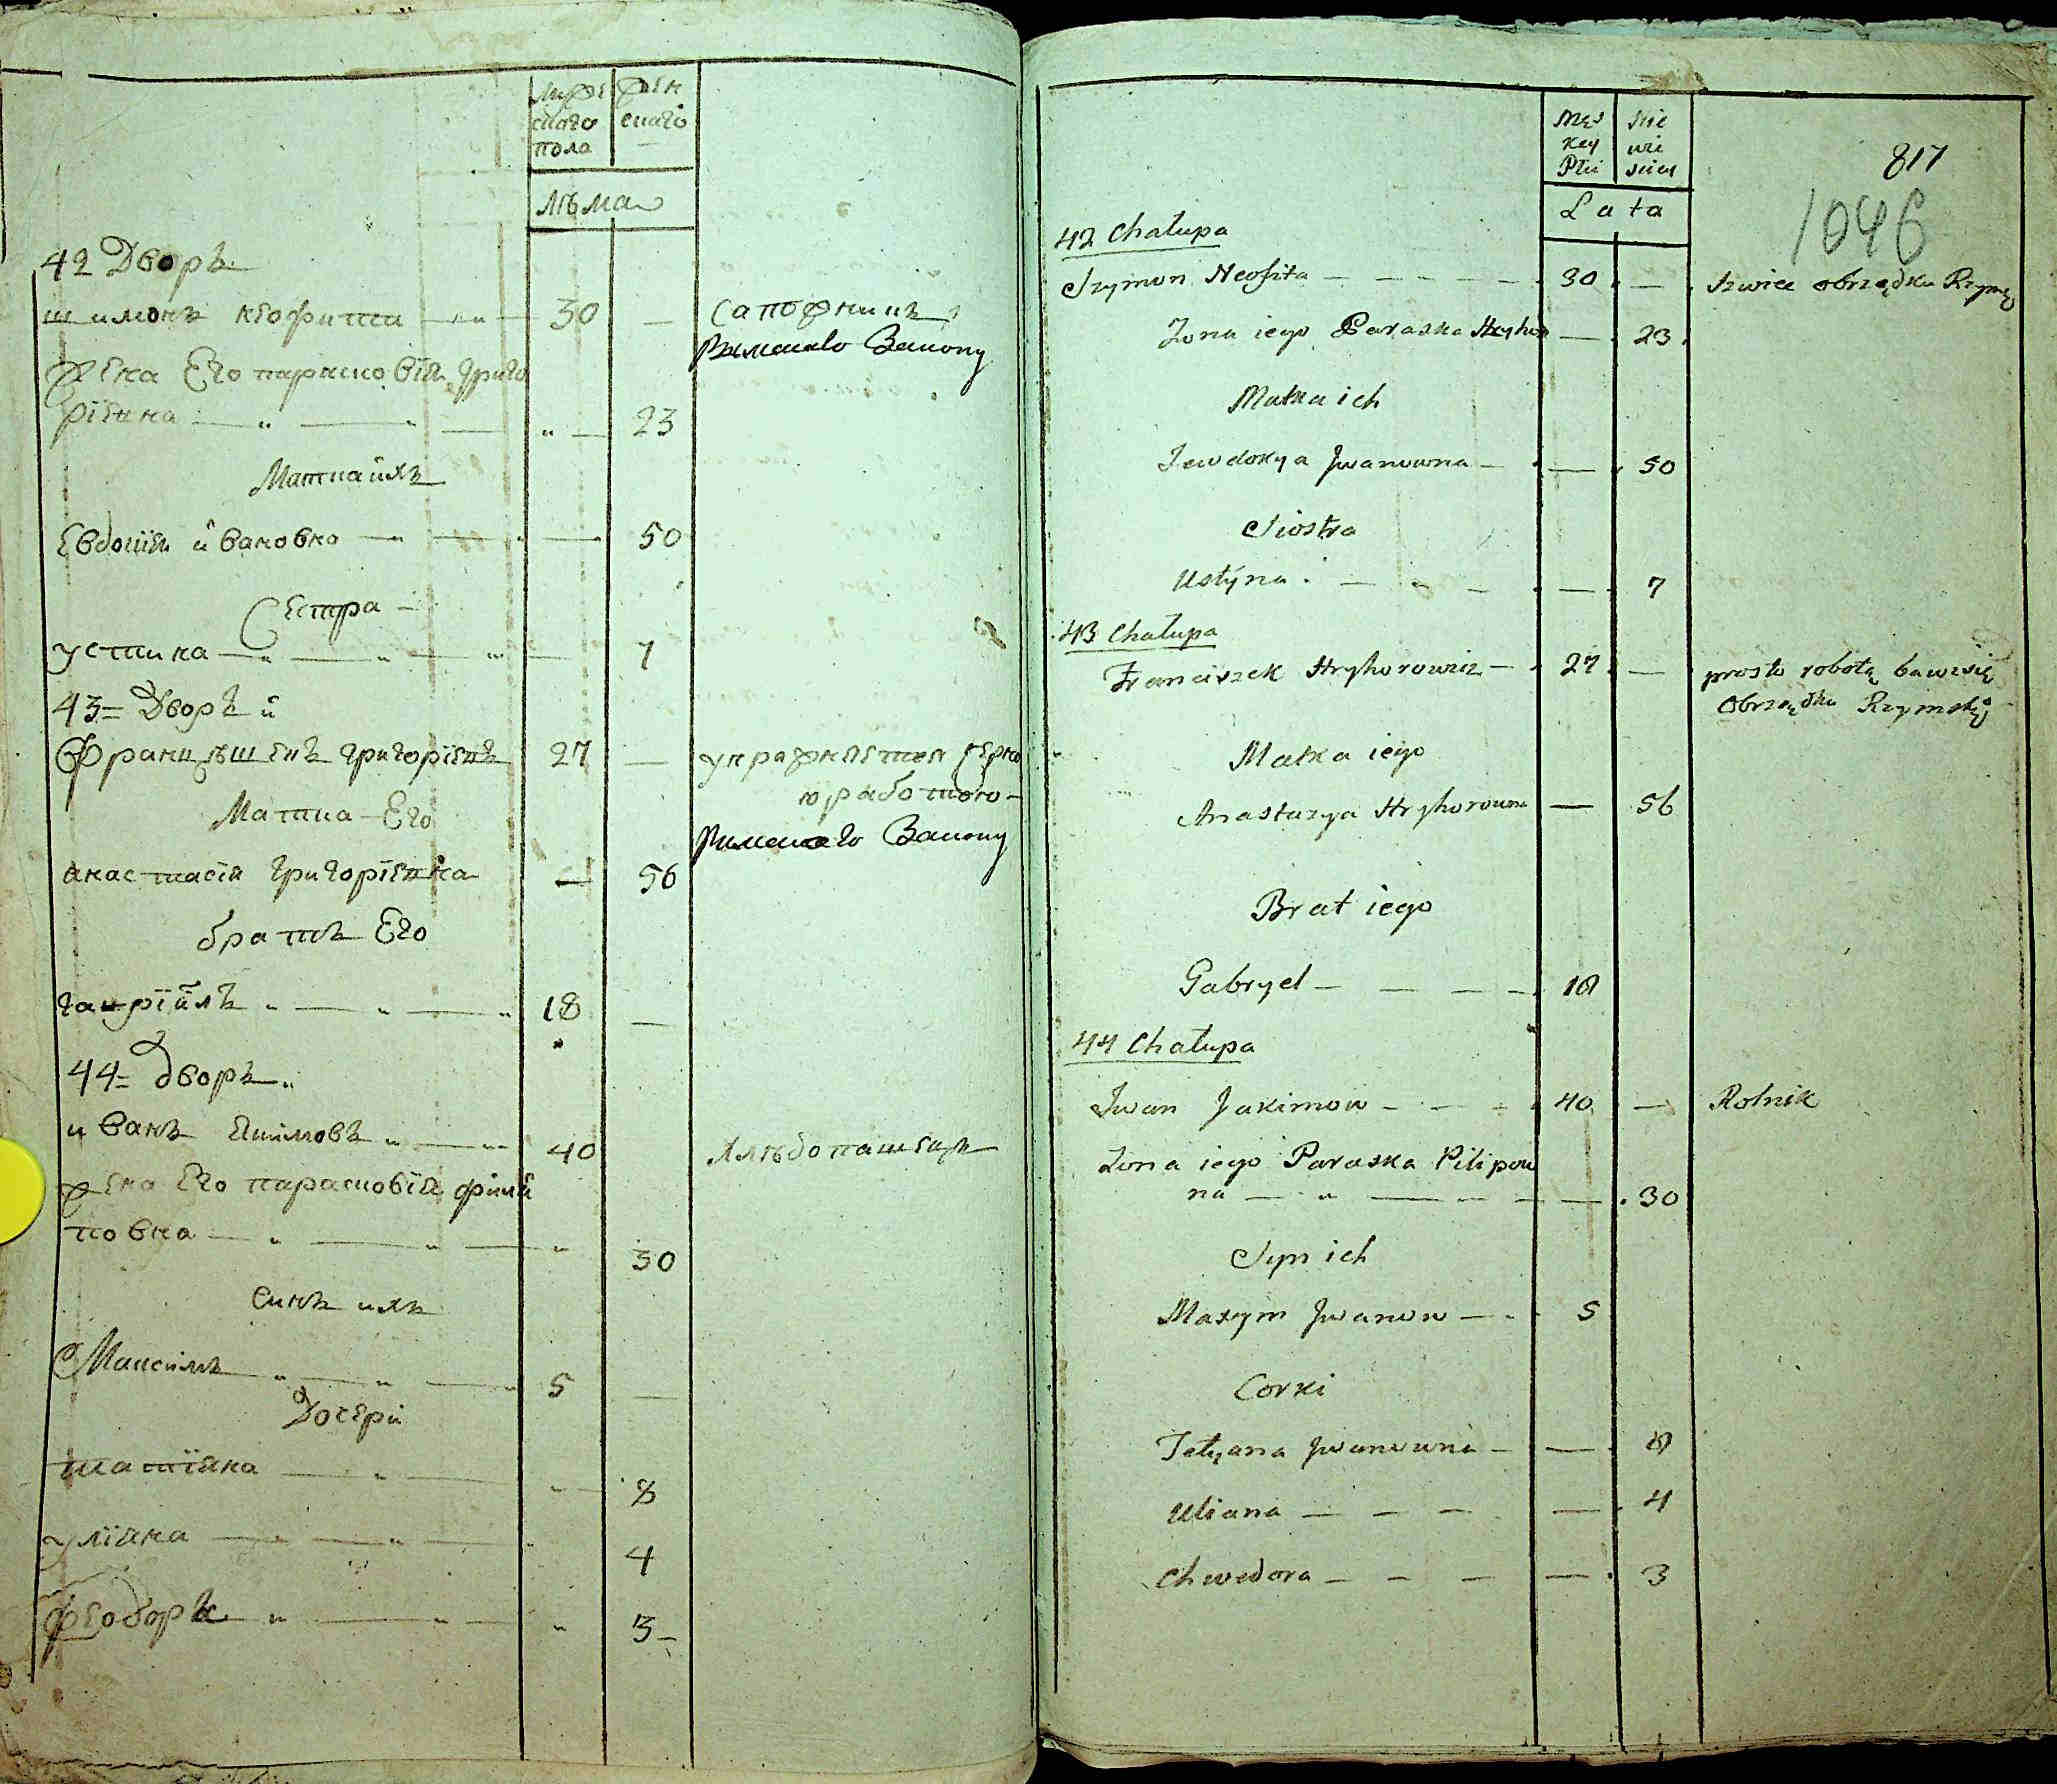 мужеского пола
женскаго
лѣта
42 Дворъ
шимонъ неофита 30 — сапожникъ
Римскаго Закону
жена Его парасковія григо
ріева 23
Матка ихъ
Евдокія ивановна 50
Сестра
устина 7
43 Дворъ
Францѣшекъ григоріевъ 27 — упражняется черно
ю работою
Римскаго Закону
Матка Его
анастасія григоріевна — 56
братъ Его
гавріилъ 18 —
44 дворъ
иванъ Якимовъ 40 хлѣбопашецъ
жена Его парасковія филип
повна 30
синъ ихъ
Максимъ 5 —
Дочери
татіяна 8
уліяна 4
феодора 3
Męs
key
Płci
Nie
wie
sciey
Lata
817
1046
42 Chałupa
Szymon Neofita 30 — Szwiec obrządku Rzyms
Zona iego Paraska Hryhor — 23
Matka ich
Jewdokya Jwanowna — 50
Siostra
Ustyna — 7
43 Chałupa
Franciszek Hryhorowicz 27 — prosto robotą bawi się
Obrządku Rzymskie
Matka iego
Anastazya Hryhorowna — 56
Brat iego
Gabryel 18
44 Chałupa
Jwan Jakimow 40 — Rolnik
Zona iego Paraska Pilipow
na — 30
Syn ich
Maxym Jwanow 5
Corki
Tetyana Jwanowna — 8
Uliana — 4
Chwedora — 3